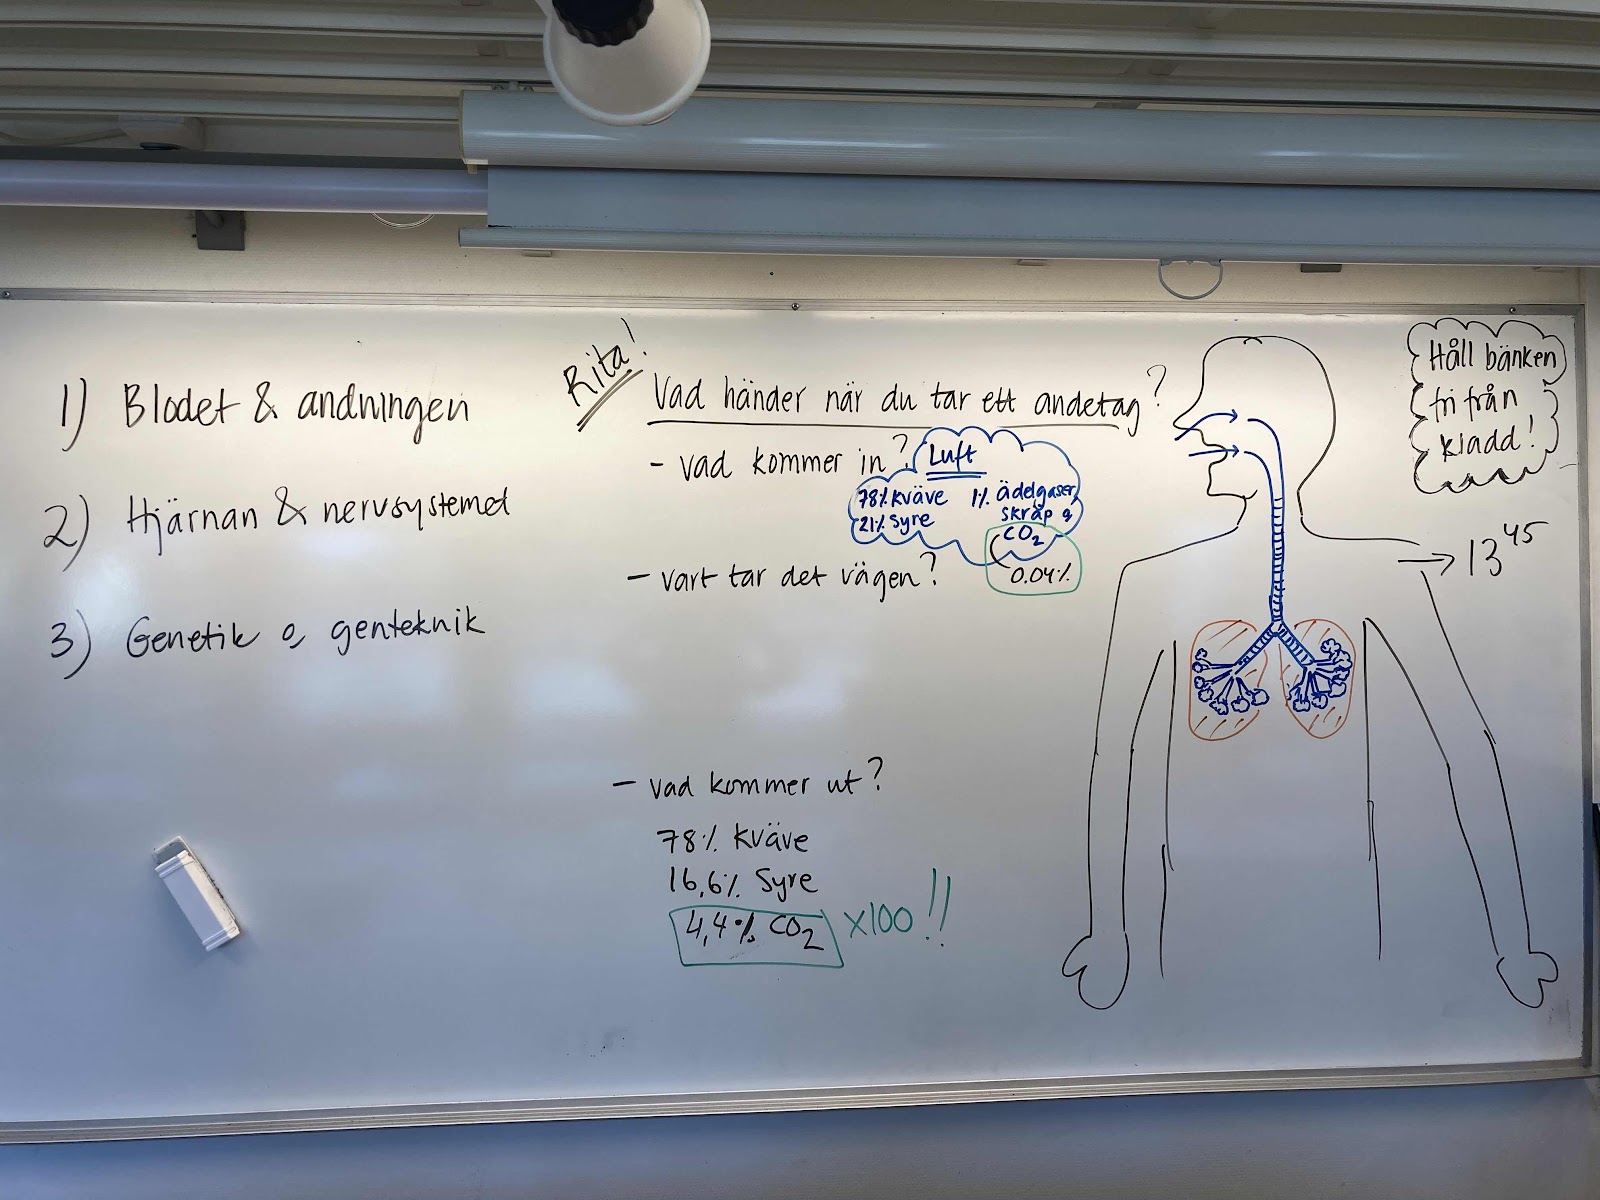 1) Blodet & andningen
2) Hjärnan & nervsystemet
3) Genetik o genteknik
Rita!
Vad händer när du tar ett andetag?
- vad kommer in?
Luft
78% kväve
21% syre
1% ädelgaser,
skräp o
CO2
0.04%
- vart tar det vägen?
- vad kommer ut?
78% kväve
16,6% syre
4,4% CO2 x100!!
Håll bänken
fri från
kladd!
→ 13 45